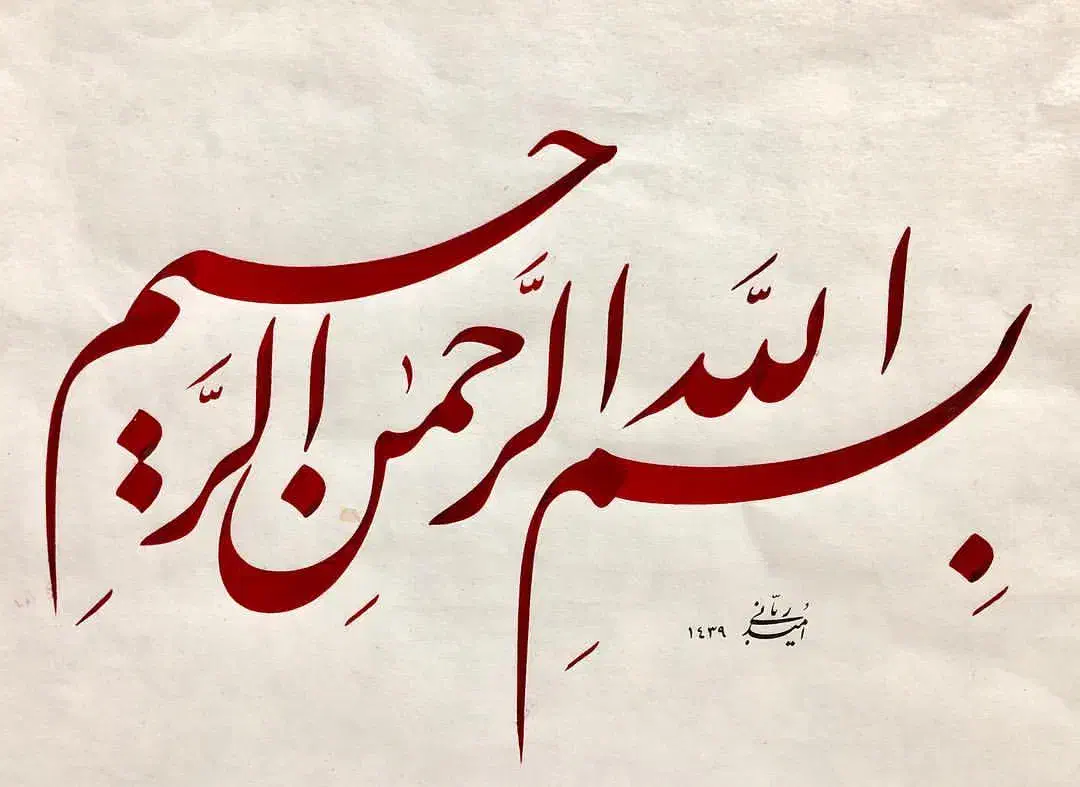 بِسمِ اللّٰه الرَّحمٰنِ الرَّحیمِ
اُمید ربّانی
١٤٣٩